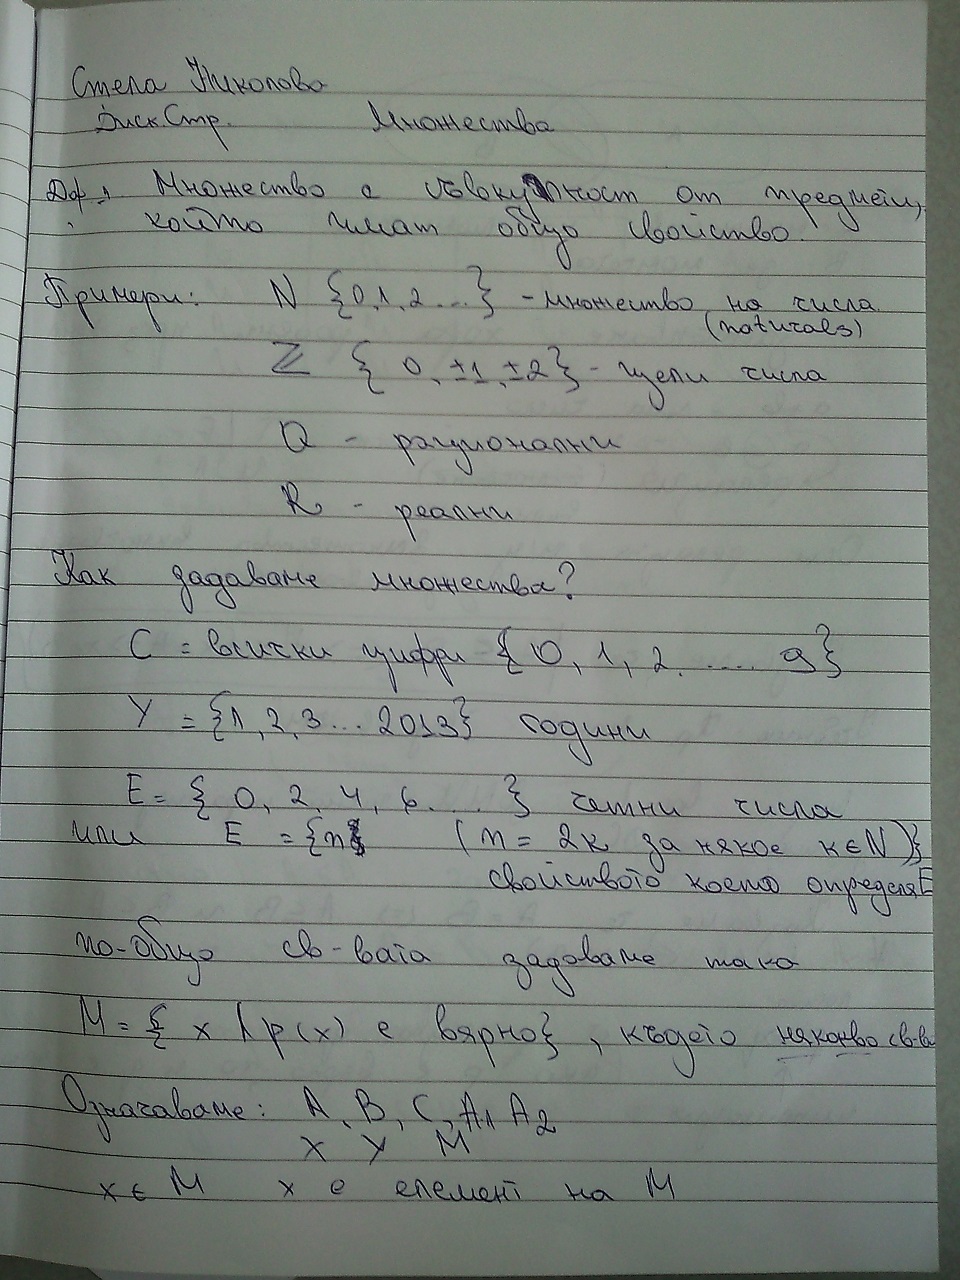 Стела Николова
Диск Стр. Множества
Деф. Множество е съвокупност от предмети,
който имат общо свойство.
Примери: N {0,1,2...} - множество на числа
(naturals)
ℤ { 0, ±1, ±2} - цели числа
Q - рационални
R - реални
Как задаваме множества?
C = всички цифри { 0, 1, 2 .... 9}
Y = {1, 2, 3 ... 2013} години
E = { 0, 2, 4, 6 .... } четни числа
или E = {n (n = 2k за някое k∈N)}
свойството което определя E
по-общо св-вата задаваме така
M = { x | p(x) е вярно} , където някакво св-во
Означаваме: A, B, C, A1 A2
X Y M
x ∈ M x е елемент на M